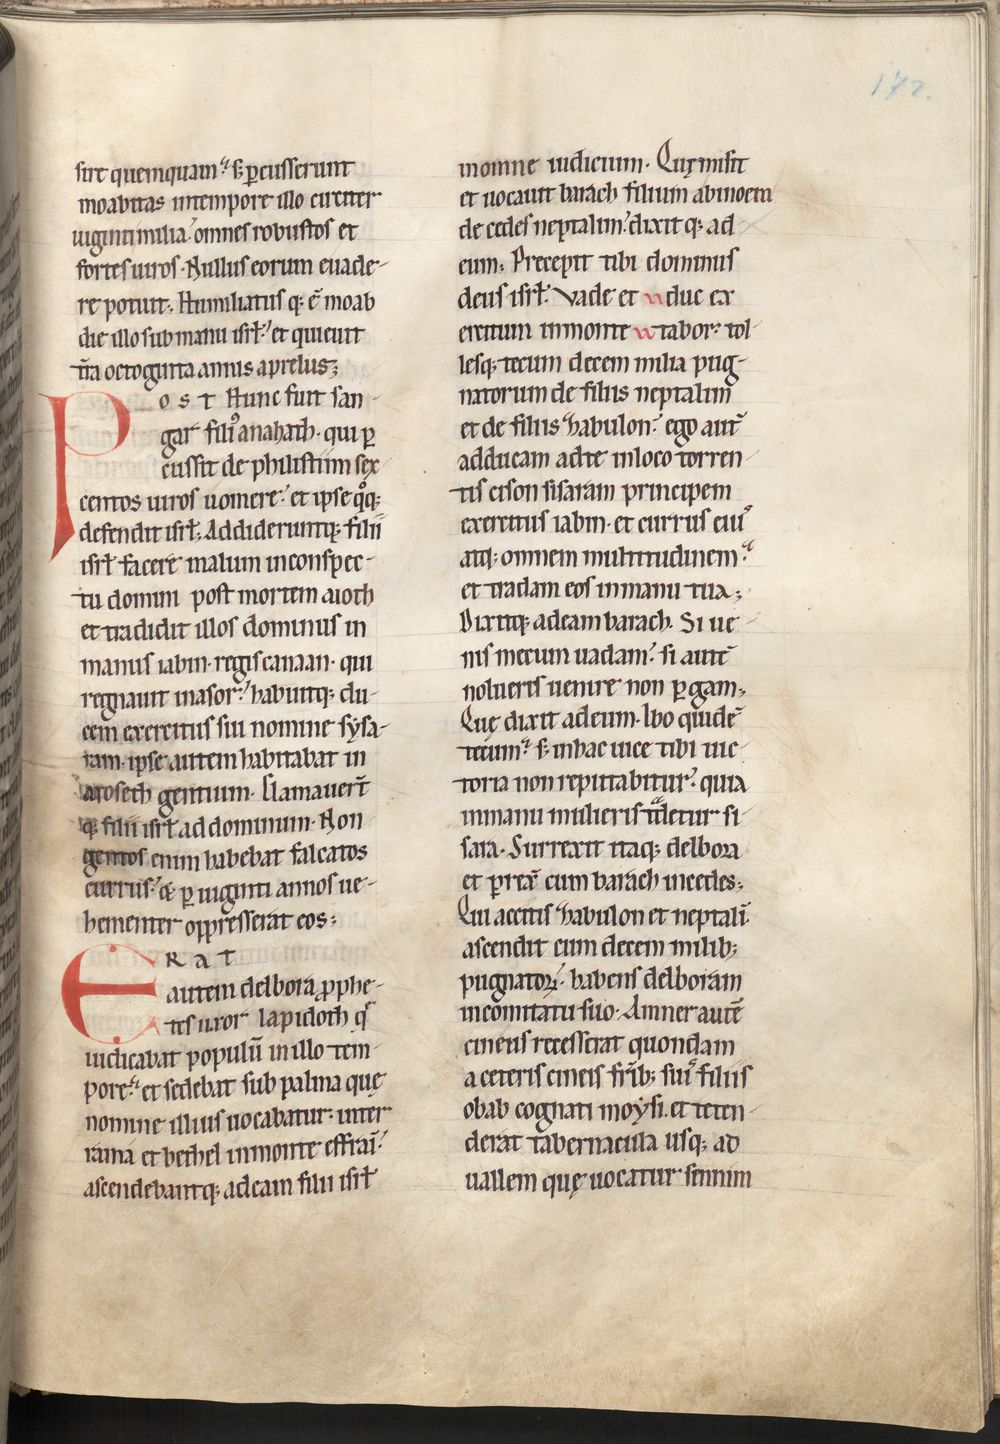 172.
sire quemquam. s; ꝑcusserunt
moabitas intempore illo circiter
uiginti milia. omnes robustos et
fortes uiros. Nullus eorum euade-
re potuit. Humiliatus q; ē moab
die illo sub manu isrł. et quieuit
tr̄a octoginta annis aprelus;
Post Hunc fuit san-
gar fili⁹ anahath. qui ꝑ
cussit de philistiim sex
centos uiros uomere. et ipse qͦq;
defendit isrł. Addideruntq; filii
isrł facere malum inconspec-
tu domini post mortem aioth
et tradidit illos dominus in
manus iabin. regis canaan. qui
regnauit inasor. habuitq; du-
cem exercitus sui nomine sysa-
ram. ipse autem habitabat in
aroseth gentium. Clamauert̄
q; filii isrł ad dominum. Non
gentos enim habebat falcatos
currus. & ꝑ uiginti annos ue-
hementer oppresserat eos;
ERat
autem delbora ꝓphe-
tes uxor lapidoth qͤ
iudicabat populū in illo tem-
pore. et sedebat sub palma quę
nomine illius uocabatur. inter
rama et bethel inmonte effraī.
ascendebantq; adeam filii isrł
inomne iudicium. Quę misit
et uocauit barach filium abinoem
de cedes neptalim. dixit q; ad
eum; Precepit tibi dominus
deus isrł. Vade et duc ex
ercitum inmonte tabor. tol-
lesq; tecum decem milia pug-
natorum de filiis neptalim
et de filiis zabulon. ego aut̄
adducam adte inloco torren-
tis cison sisaram principem
exercitus iabin. et currus eiu⁹
atq; omnem multitudinem.
et tradam eos inmanu tua;
Dixitq; adeam barach. Si ue-
nis mecum uadam. si autē
nolueris uenire non ꝑgam;
Quę dixit ad eum. Ibo quidē
tecum. s; inhac uice tibi uic-
toria non reputabitur. quia
inmanu mulieris tͣdetur si-
sara. Surrexit itaq; delbora
et ꝑrex̄ cum barach incedes;
Qui accitis zabulon et neptalī
ascendit cum decem milib;
pugnatoꝝ. habens delboram
incomitatu suo. Amner autē
cineus recesserat quondam
a ceteris cineis fr̄ib; suī filiis
obab cognati moysi. et teten-
derat tabernacula usq; ad
uallem quę uocatur sennim